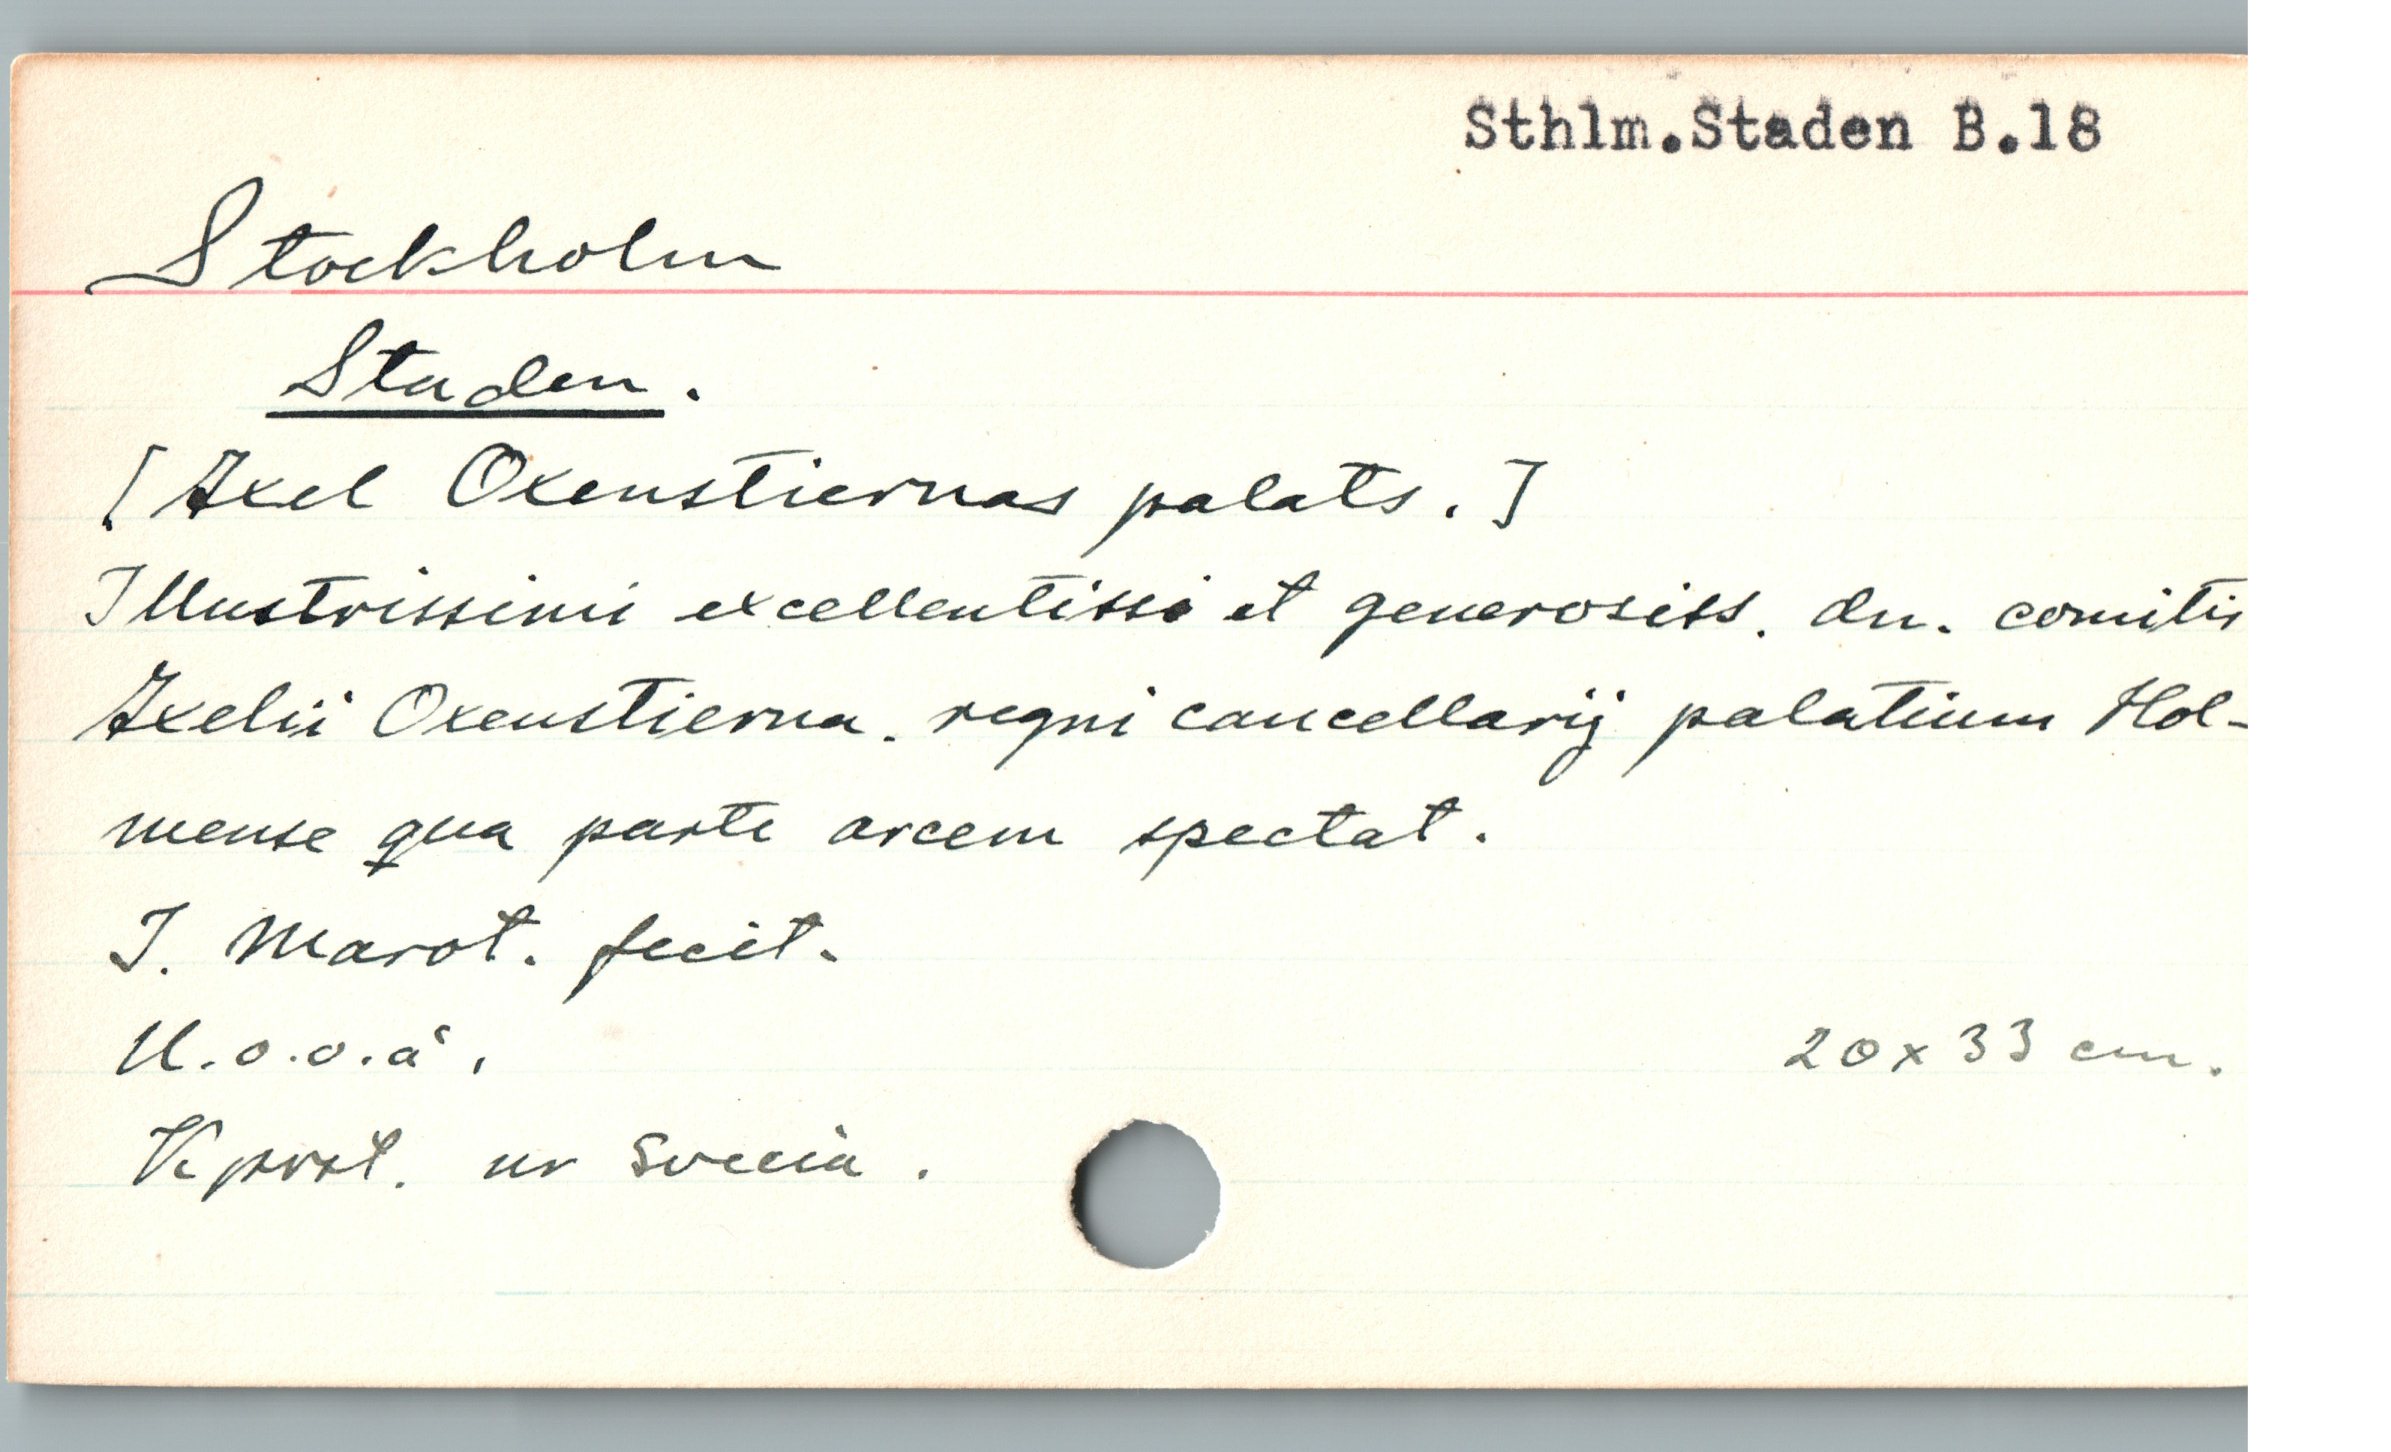 Sthlm.Staden B.18
Stockholm
Staden.
[Axel Oxenstiernas palats.]
Illustrissimi excellentissi et generosiss. dn. comitis
Axelii Oxenstierna. regni cancellarij palatium Hol-
mense qua parte arcem spectat.
I. Marot. fecit.
U.o.o.å. 20x33 cm.
Kprst. ur Svecia.